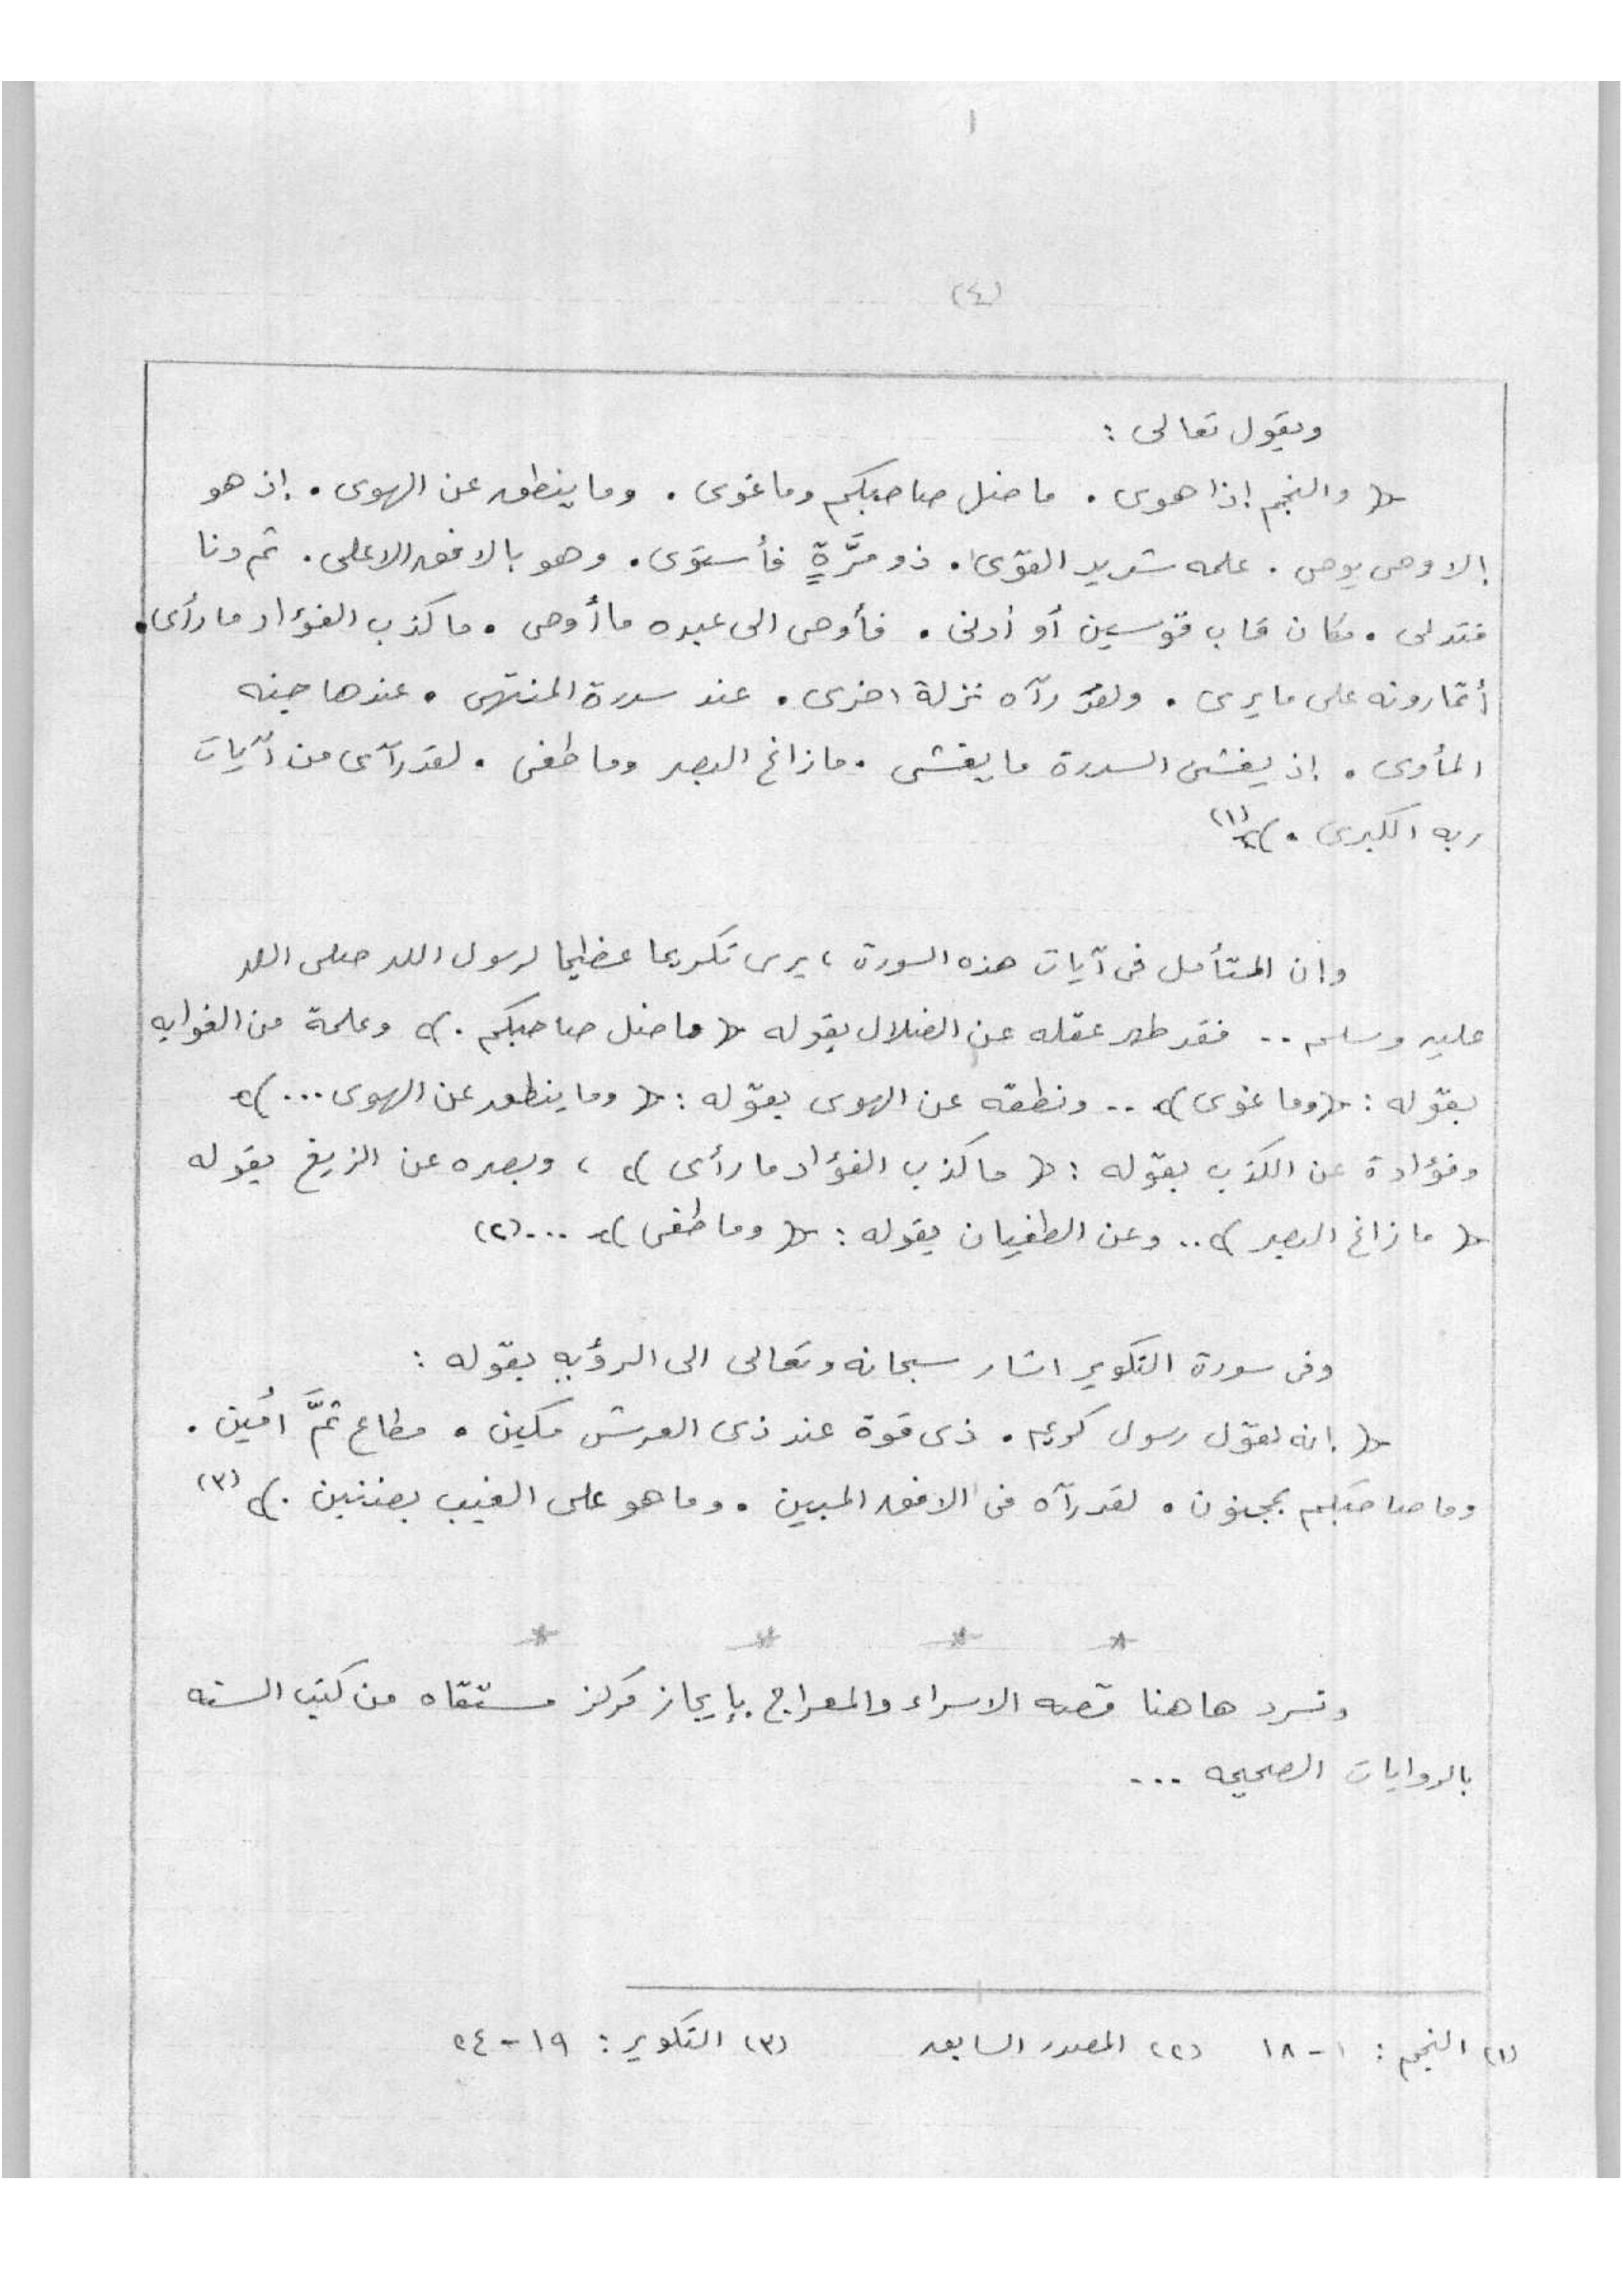 ١
(٤)
ويقول تعالى :
﴿ والنجم إذا هوى . ما ضل صاحبكم وما غوى . وما ينطق عن الهوى . إن هو
إلا وحى يوحى . علمه شديد القوى . ذو مرَّةٍ فأستوى . وهو بالافق الاعلى . ثم دنا
فتدلى . فكان قاب قوسين أو أدنى . فأوحى الى عبده ما أوحى . ما كذب الفؤاد ما رأى .
أتمارونه على ما يرى . ولقد رآه نزلة اخرى . عند سدرة المنتهى . عندها جنه
المأوى . إذ يغشى السدرة ما يغشى . ما زاغ البصر وما طغى . لقد رآى من آيات
ربه الكبرى . ﴾ (١)
وإن المتأمل فى آيات هذه السورة ، يرى تكريما عظيما لرسول الله صلى الله
عليه وسلم .. فقد طهر عقله عن الضلال بقوله ﴿ ما ضل صاحبكم . ﴾ وعلمة من الغوايه
بقوله : ﴿ وما غوى ﴾ .. ونطقه عن الهوى بقوله : ﴿ وما ينطق عن الهوى ... ﴾
وفؤادة عن الكذب بقوله : ﴿ ما كذب الفؤاد ما رأى ﴾ ، وبصره عن الزيغ بقوله
﴿ ما زاغ البصر ﴾ .. وعن الطغيان بقوله : ﴿ وما طغى ﴾ ... (٢)
وفى سورة التكوير اشار سبحانه وتعالى الى الرؤيه بقوله :
﴿ إنه لقول رسول كريم . ذى قوة عند ذى العرش مكين . مطاع ثمَّ أمين .
وما صاحبكم بمجنون . لقد رآه فى الافق المبين . وما هو على الغيب بضنين . ﴾ (٣)
* * * *
ونسرد هاهنا قصه الاسراء والمعراج بإيجاز مركز مستقاه من كتب السنه
بالروايات الصحيحه ...
(١) النجم : ١ - ١٨ (٢) المصدر السابق (٣) التكوير : ١٩ - ٢٤